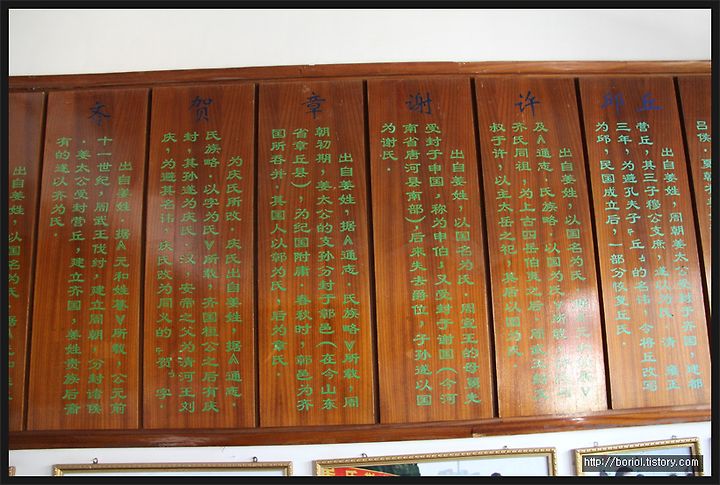 吕
侯,夏朝
邱丘
出自姜姓,周朝姜太公受封于齐国,建都
营丘,其三子穆公支庶,遂以为氏,清 雍正
三年,为避孔夫子「丘」的名讳,令将丘改写
为邱,民国成立后,一部分收复丘氏.
许
出自姜姓,以国名为氏
及《通志.氏族略.以国为氏》所载
齐氏同祖.为上古四岳伯夷之后.周武王封文
叔于许,以主太岳之祀,其后以国为氏
谢
出自姜姓,以国名为氏.周宣王的母舅先
受封于申国,称为申伯,又受封于谢国(今河
南省唐河县南部),后来失去爵位,子孙遂以国
为谢氏.
章
出自姜姓,据《通志.氏族略》所载,周
朝初期,姜太公的支孙分封于鄣邑(在今山东
省章丘县),为纪国附庸.春秋时,鄣邑为齐
国所吞并,其国人以鄣为氏,后为章氏.
贺
为庆氏所改.庆氏出自姜姓,据《通志.
氏族略.以字为氏》所载,齐国桓公之后有庆
封,其孙遂为庆氏.汉,安帝之父为清河王刘
庆,为避其名讳,庆氏改为同义的「贺」字.
齐
出自姜姓.据《元和姓纂》所载,公元前
十一世纪,周武王伐纣,建立周朝,分封诸侯
.姜太公被封营丘,建立齐国,姜姓贵族后裔
有的遂以齐为氏.
出自姜姓,以国名为氏
http://boriol.tistory.com